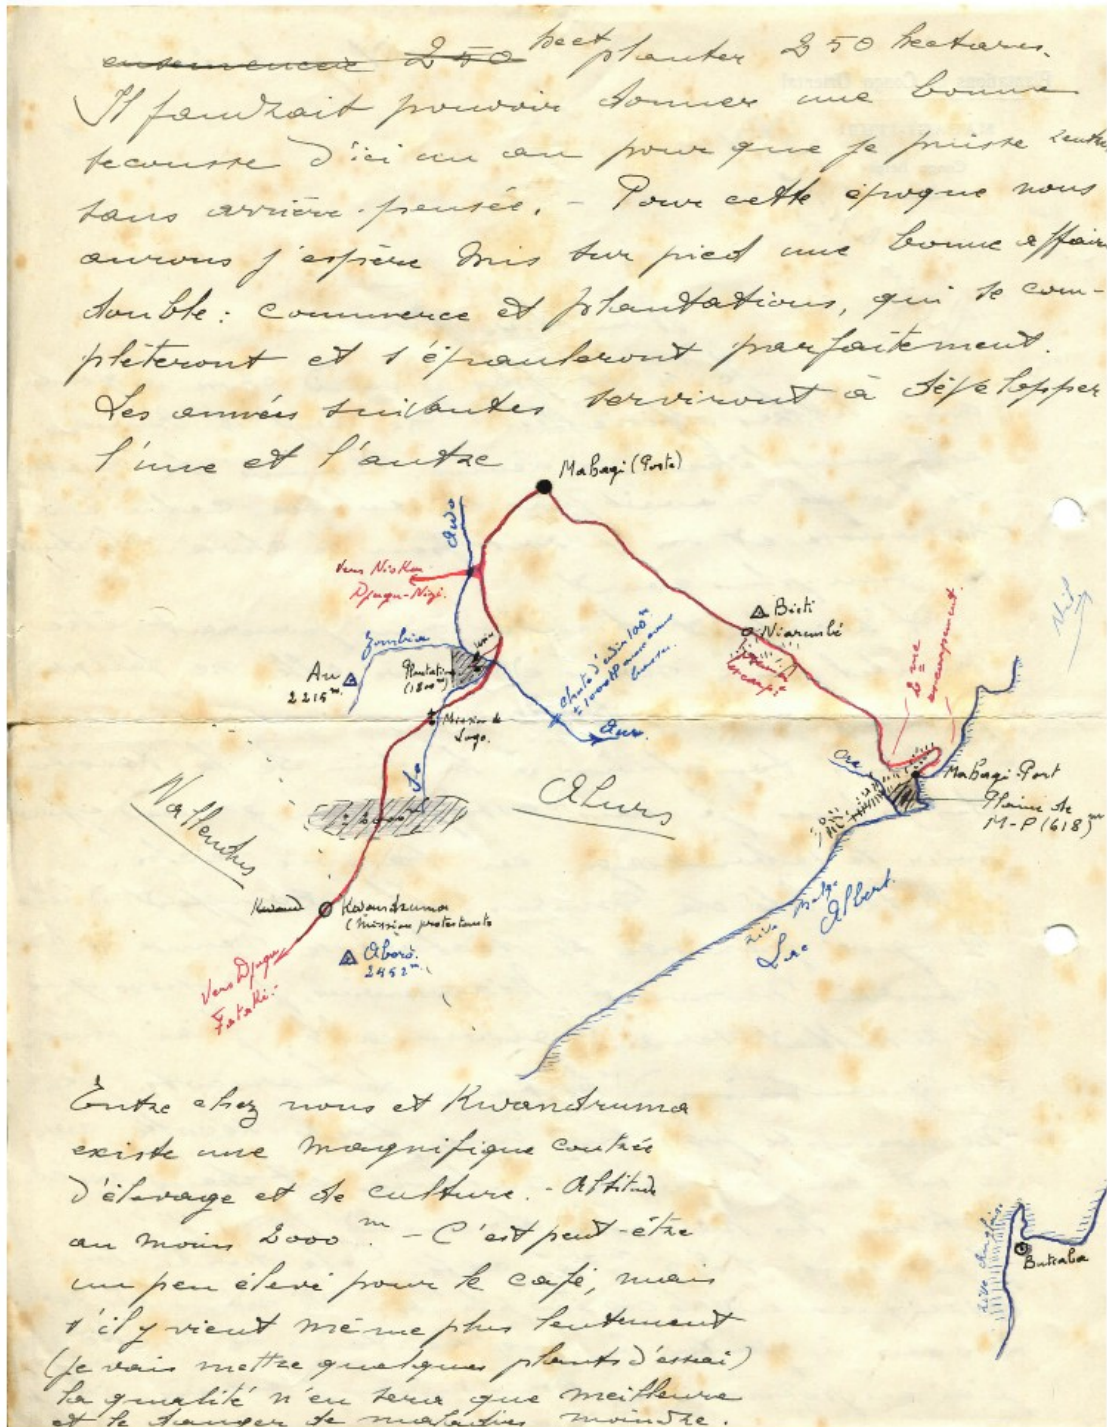 ensemencer 250 hect planter 250 hectares.
Il faudrait pouvoir donner une bonne
secousse d'ici un an pour que je puisse rentrer
sans arrière-pensée. - Pour cette époque nous
aurons j'espère mis sur pied une bonne affaire
double : commerce et plantations, qui se com-
plèteront et s'épauleront parfaitement.
Les années suivantes serviront à développer
l'une et l'autre
Mahagi (Poste)
Awo
Vers Nioka
Djugu-Nizi.
Zombia
Au
2215 m.
Plantation
(1800 m)
Mission de
Logo.
chute d'environ 100 m
± 1000 HP
Béti
Niarembé
escarpt
2me
escarpement.
Nil
Mahagi-Port
Plaine de
M-P (618) m
Alurs
Wallendus
Kwand
Kwandruma
(Mission protestante
Aboro.
2452 m.
Vers Djugu
Fataki.-
rive belge
Lac Albert.
Entre chez nous et Kwandruma
existe une magnifique contrée
d'élevage et de culture. - Altitude
au moins 2000 m. - C'est peut-être
un peu élevé pour le café, mais
s'il y vient même plus lentement
(je vais mettre quelques plants d'essai)
la qualité n'en sera que meilleure
et le danger de maladies moindre.
rive anglaise.
Butiaba